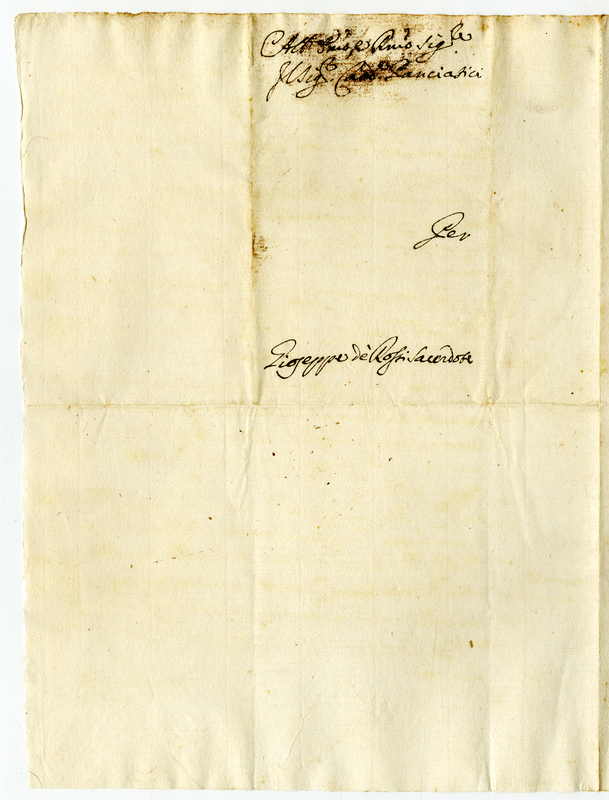 All' Em.o e Rmo Sig.re
Il Sig.r Card. Panciatici
Per
Gioseppe dè Rossi Sacerdote